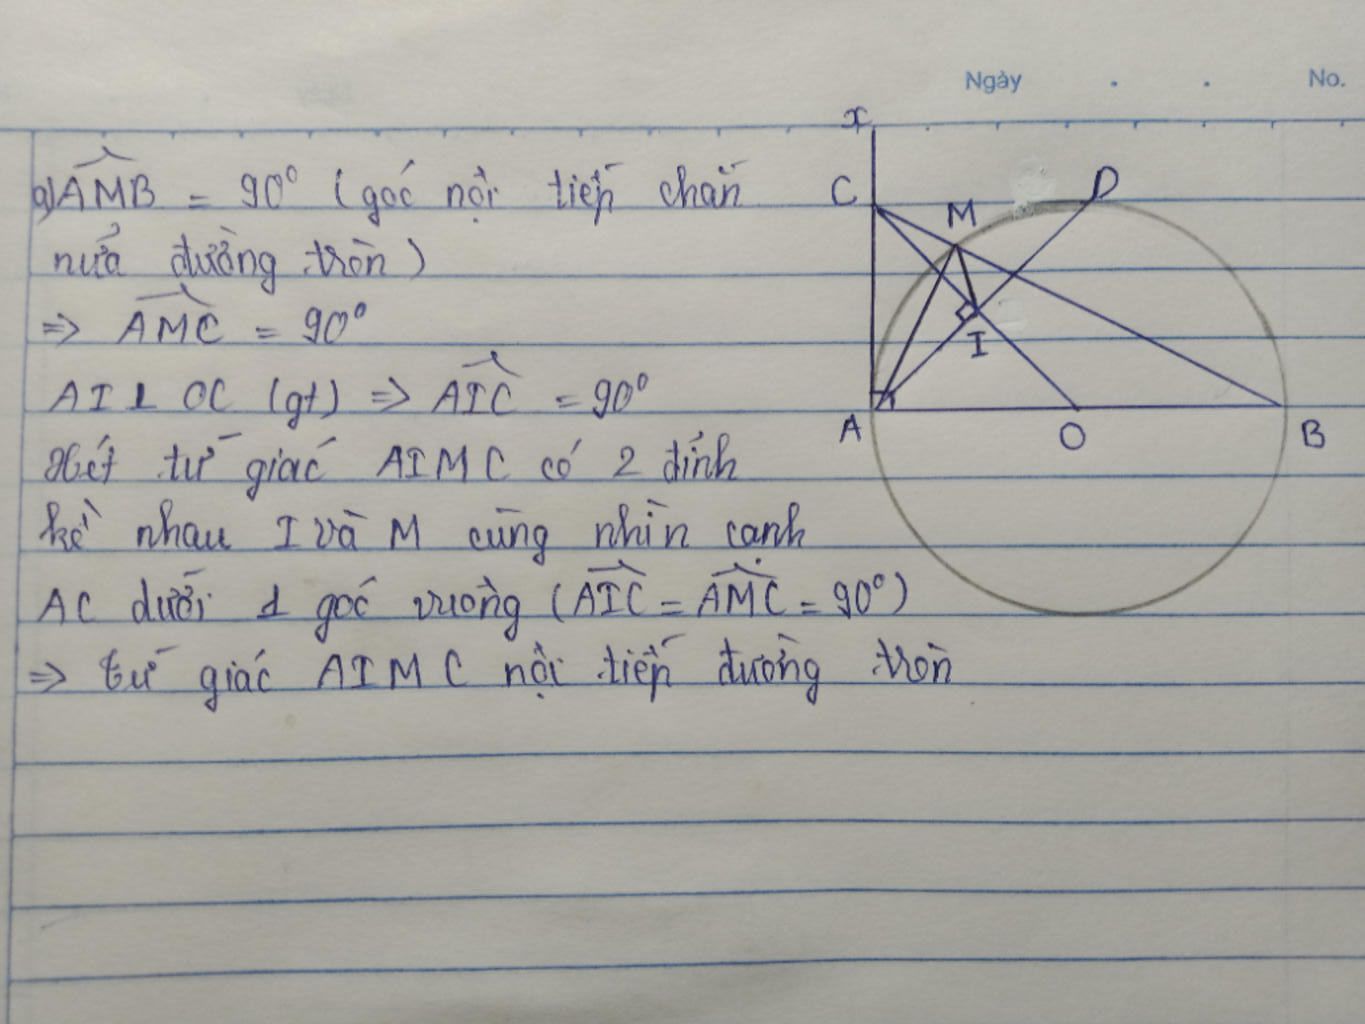 Ngày . . No.
a) AMB = 90° (góc nội tiếp chắn
nửa đường tròn)
=> AMC = 90°
AI ⊥ OC (gt) => AIC = 90°
Xét tứ giác AIMC có 2 đỉnh
kề nhau I và M cùng nhìn cạnh
AC dưới 1 góc vuông (AIC = AMC = 90°)
=> tứ giác AIMC nội tiếp đường tròn
x
C
M
D
I
A
O
B